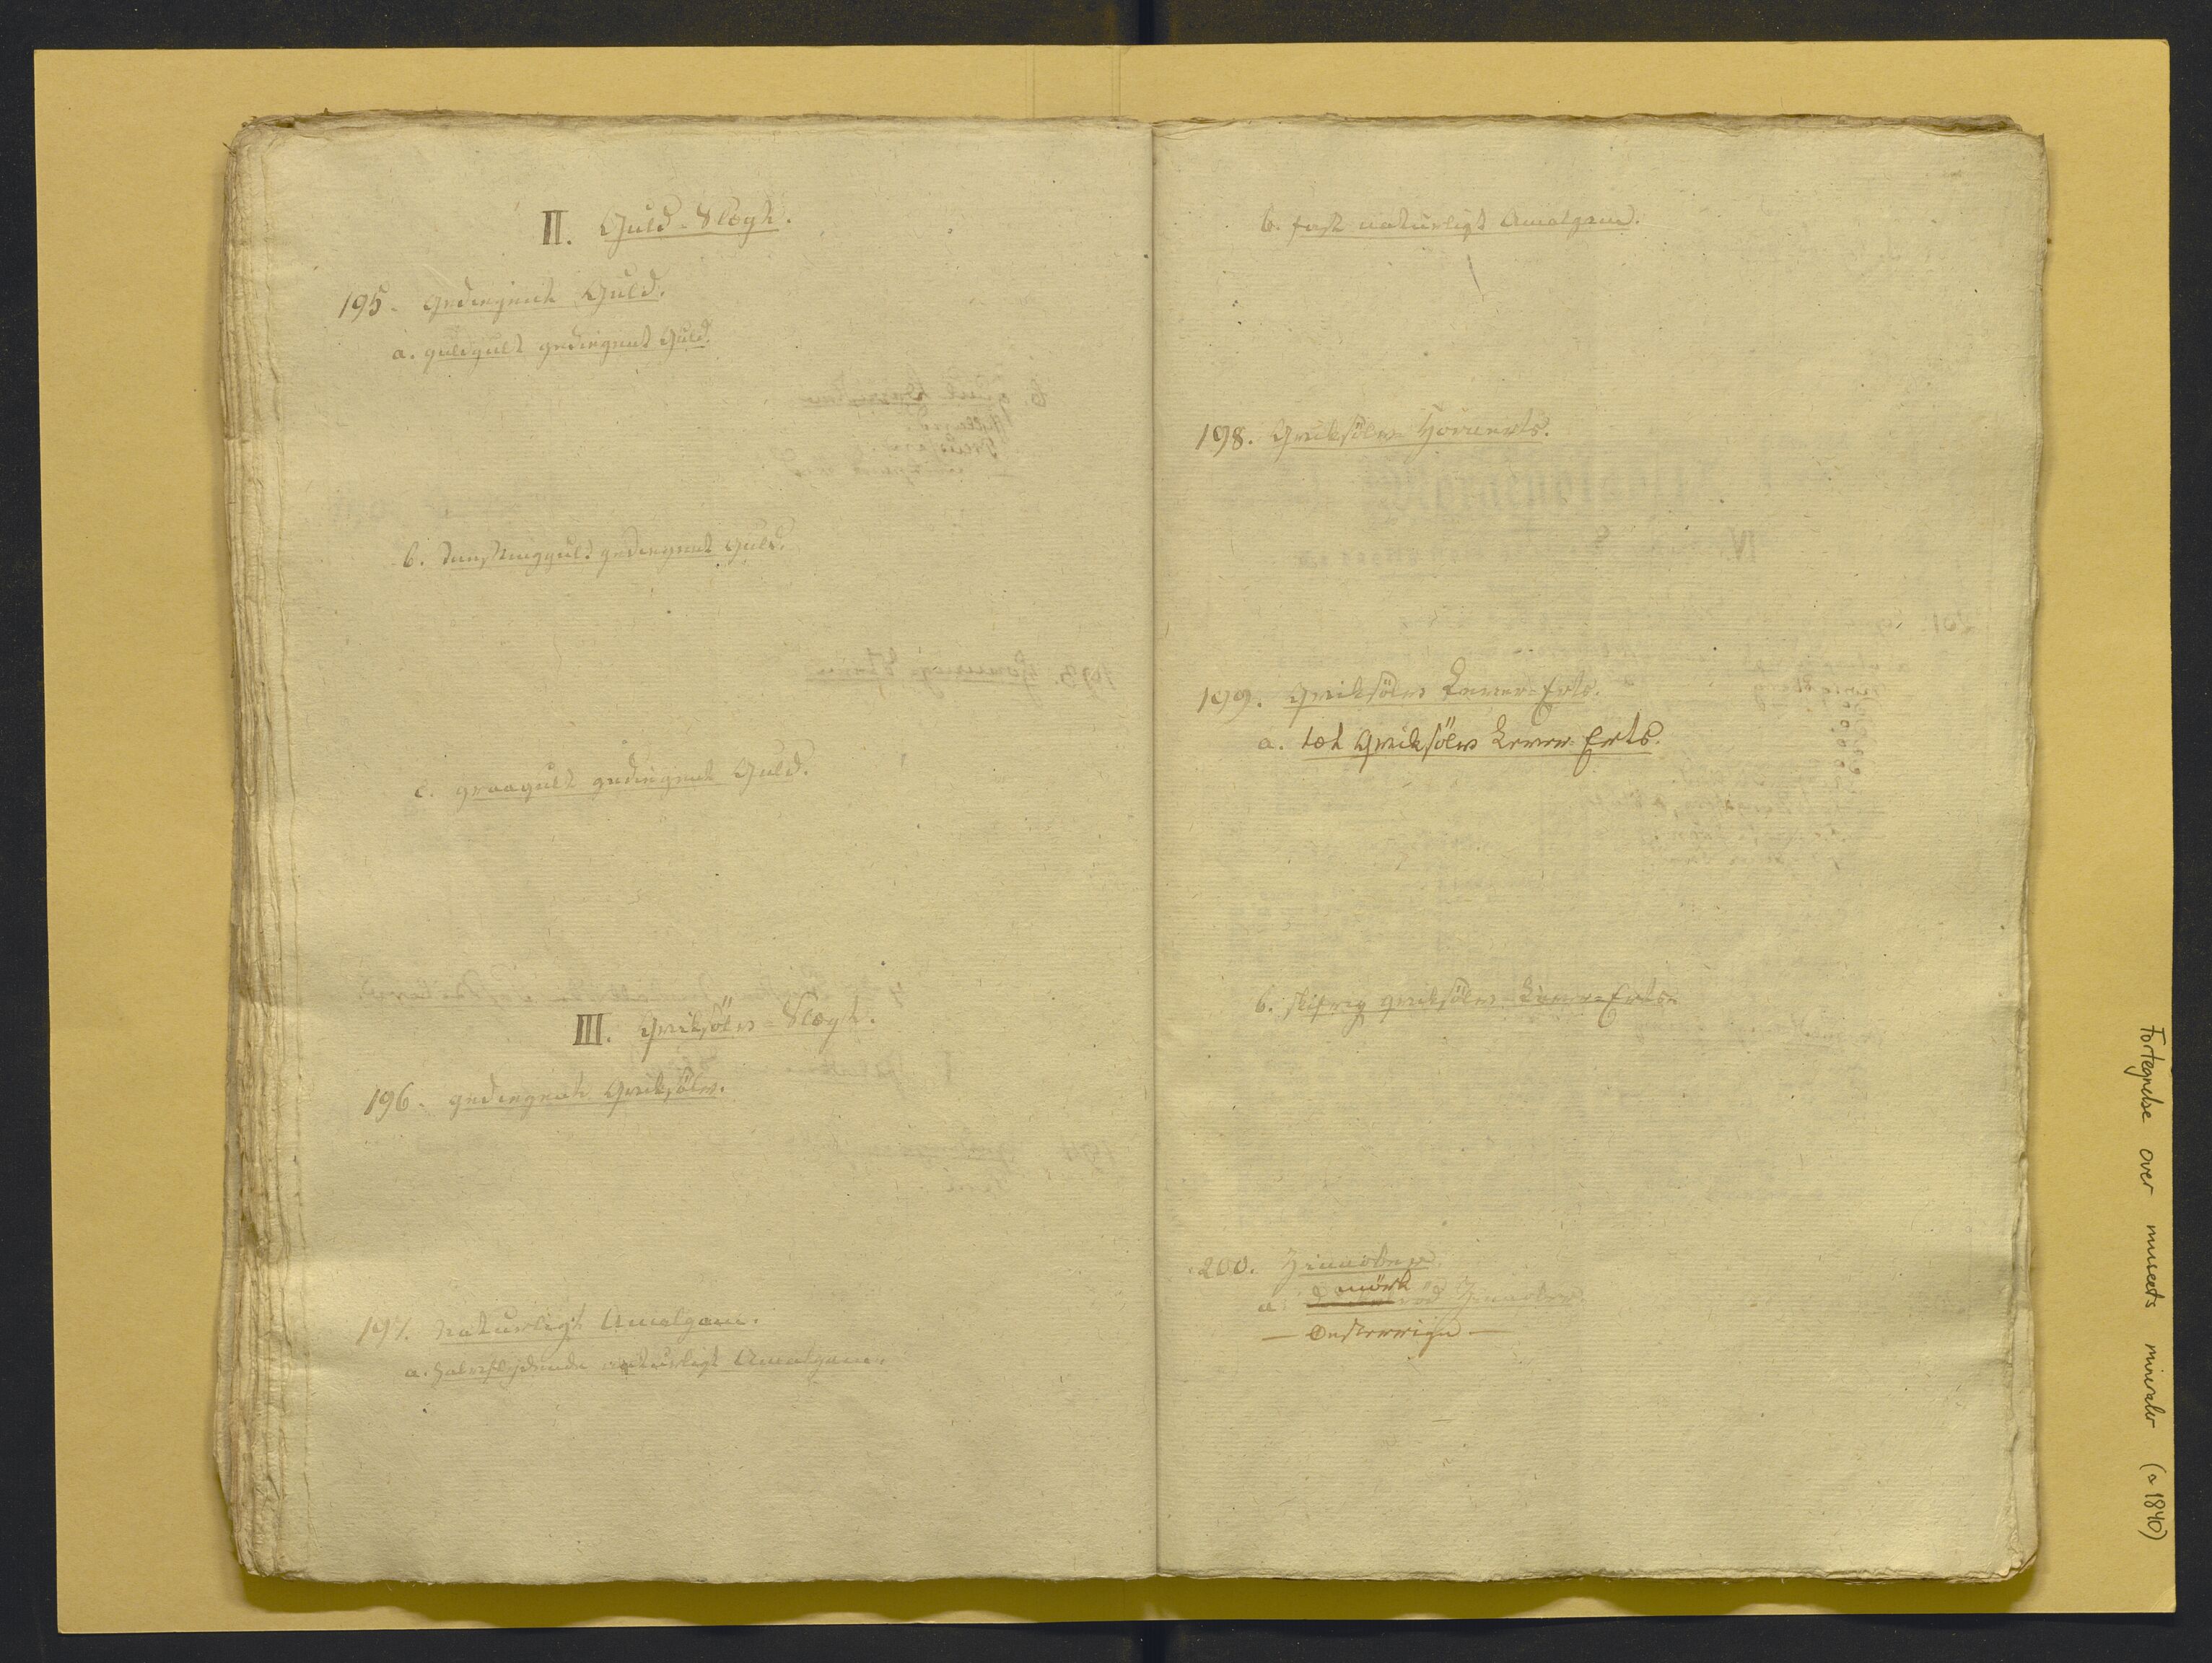 II. Guld-Slægt.
195. gediegent Guld.
a. guldgult gediegent Guld.
b. Messinggult gediegent Guld.
c. graagult gediegent Guld.
III. Qviksölv-Slægt.
196. gediegent Qviksölv.
197. naturligt Amalgam.
a. halvflydende naturligt Amalgam.
b. fast naturligt Amalgam.
198. Qviksölv-Hornerts.
199. Qviksölv Lever-Erts.
a. tæt Qviksölv Lever-Erts.
b. skifrig Qviksölv-Lever-Erts.
200. Zinnober
a. mörk röd Zinnober.
— Onsterrige —
Fortegnelse over museets mineraler (a 1840)